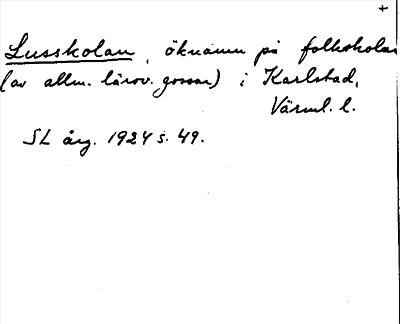 +
Lusskolan, öknamn på folkskolan
(av allm. lärov. gossar) i Karlstad,
Värml. l.
SL årg. 1924 s. 49.